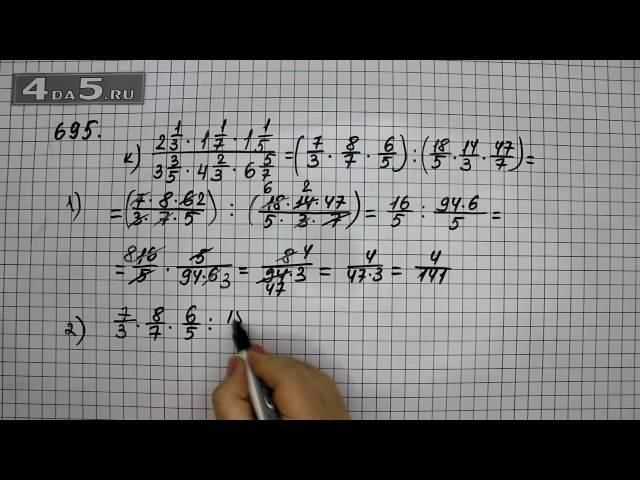 4ДА5.RU
695.
к) (2 1/3 · 1 1/7 · 1 1/5)/(3 3/5 · 4 2/3 · 6 5/7) = (7/3 · 8/7 · 6/5) : (18/5 · 14/3 · 47/7) =
1) = (7 · 8 · 6 2)/(3 · 7 · 5) : (6 2 18 · 14 · 47)/(5 · 3 · 7) = 16/5 : (94 · 6)/5 =
= 8 16/5 · 5/(94 · 6 3) = 8 4/(94 · 3 47) = 4/(47 · 3) = 4/141
2) 7/3 · 8/7 · 6/5 : 1